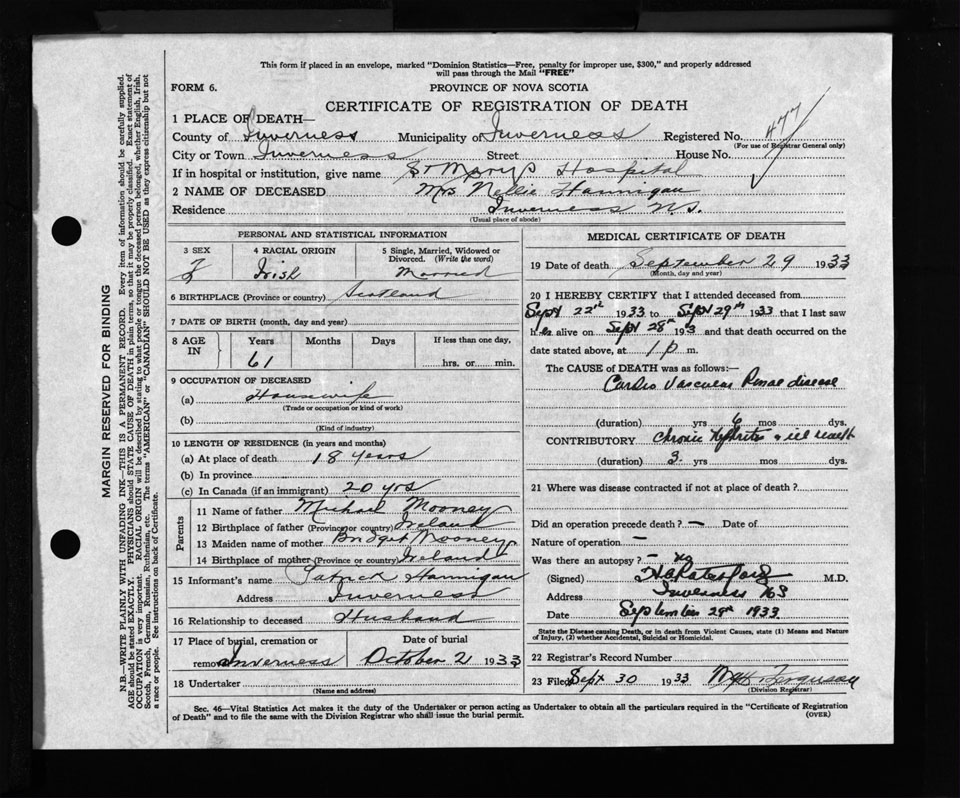 This form if placed in an envelope, marked "Dominion Statistics—Free, penalty for improper use, $300," and properly addressed
will pass through the Mail "FREE"
FORM 6.
PROVINCE OF NOVA SCOTIA
CERTIFICATE OF REGISTRATION OF DEATH
1 PLACE OF DEATH—
County of Inverness Municipality of Inverness Registered No. 477
(For use of Registrar General only)
City or Town Inverness Street House No.
If in hospital or institution, give name St Mary's Hospital
2 NAME OF DECEASED Mrs Nellie Hannigan
Residence Inverness N.S.
(Usual place of abode)
PERSONAL AND STATISTICAL INFORMATION
3 SEX 4 RACIAL ORIGIN 5 Single, Married, Widowed or
Divorced. (Write the word)
F Irish Married
6 BIRTHPLACE (Province or country) Scotland
7 DATE OF BIRTH (month, day and year)
8 AGE IN Years Months Days If less than one day,
61 hrs. or min.
9 OCCUPATION OF DECEASED
(a) Housewife
(Trade or occupation or kind of work)
(b)
(Kind of industry)
10 LENGTH OF RESIDENCE (in years and months)
(a) At place of death 18 years
(b) In province
(c) In Canada (if an immigrant) 20 yrs
Parents
11 Name of father Michael Mooney
12 Birthplace of father (Province or country) Ireland
13 Maiden name of mother Bridget Mooney
14 Birthplace of mother (Province or country) Ireland
15 Informant's name Patrick Hannigan
Address Inverness
16 Relationship to deceased Husband
17 Place of burial, cremation or Date of burial
removal Inverness October 2 1933
18 Undertaker
(Name and address)
MEDICAL CERTIFICATE OF DEATH
19 Date of death September 29 1933
(Month, day and year)
20 I HEREBY CERTIFY that I attended deceased from
Sept 22nd 1933 to Sept 29th 1933 that I last saw
h er alive on Sept 28th 193 and that death occurred on
date stated above, at 1 P m.
The CAUSE of DEATH was as follows:—
Cardio Vascular Renal disease
(duration) yrs 6 mos dys.
CONTRIBUTORY Chronic Nephritis & ill health
(duration) 3 yrs mos dys.
21 Where was disease contracted if not at place of death?
Did an operation precede death? — Date of
Nature of operation —
Was there an autopsy? — No
(Signed) M.D.
Address Inverness NS
Date September 29th 1933
State the Disease causing Death, or in death from Violent Causes, state (1) Means and Nature
of Injury, (2) whether Accidental, Suicidal or Homicidal.
22 Registrar's Record Number
23 Filed Sept 30 1933 Ferguson
(Division Registrar)
Sec. 46—Vital Statistics Act makes it the duty of the Undertaker or person acting as Undertaker to obtain all the particulars required in the "Certificate of Registration
of Death" and to file the same with the Division Registrar who shall issue the burial permit.
(OVER)
MARGIN RESERVED FOR BINDING
N.B.—WRITE PLAINLY WITH UNFADING INK—THIS IS A PERMANENT RECORD. Every item of information should be carefully supplied.
AGE should be stated EXACTLY. PHYSICIANS should STATE CAUSE OF DEATH in plain terms, so that it may be properly classified. Exact statement of
OCCUPATION is very important. RACIAL ORIGIN will be described by stating to what people or tongue the deceased person belonged, whether English, Irish,
Scotch, French, German, Russian, Ruthenian, etc. The terms "AMERICAN" or "CANADIAN" SHOULD NOT BE USED as they express citizenship but not
a race or people. See instructions on back of Certificate.